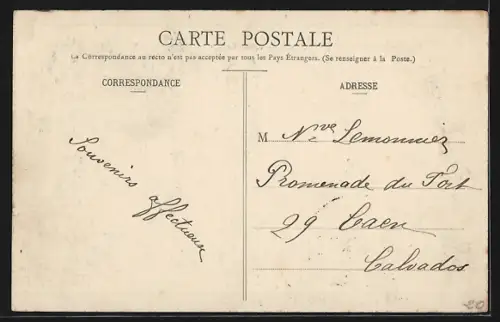 CARTE POSTALE
La Correspondance au recto n'est pas acceptée par tous les Pays Étrangers. (Se renseigner à la Poste.)
CORRESPONDANCE
Souvenirs
affectueux
ADRESSE
M Nve Lemonnier
Promenade du Fort
29 Caen
Calvados
20